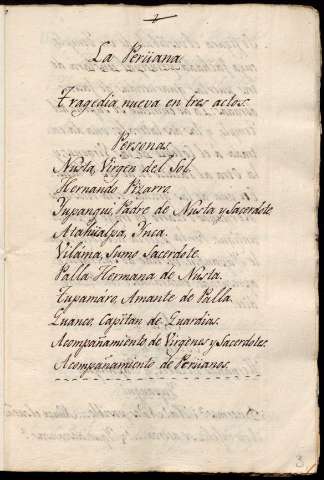 La Perùana.
Tragedia nueva en tres actos.
Personas
Nusta, Virgen del Sol.
Hernando Pizarro.
Yupanqui, Padre de Nusta y Sacerdote
Atahualpa, Ynca.
Viláma, Sumo Sacerdote.
Palla Hermana de Nusta.
Tupamáro, Amante de Palla.
Guanco, Capitan de Guardias.
Acompañamiento de Virgenes y Sacerdotes.
Acompañamiento de Perùanos.
3